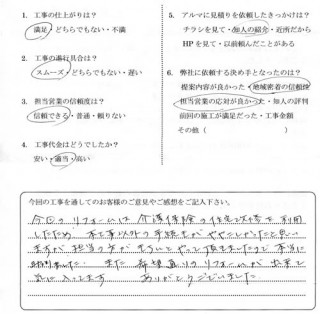 1. 工事の仕上がりは？
満足・どちらでもない・不満
2. 工事の進行具合は？
スムーズ・どちらでもない・遅い
3. 担当営業の信頼度は？
信頼できる・普通・頼りない
4. 工事代金はどうでしたか？
安い・適当・高い
5. アルマに見積りを依頼したきっかけは？
チラシを見て・知人の紹介・近所だから
HPを見て・以前頼んだことがある
6. 弊社に依頼する決め手となったのは？
提案内容が良かった・地域密着の信頼度
担当営業の応対が良かった・知人の評判
前回の施工が満足だった・工事金額
その他（　　　）
今回の工事を通してのお客様のご意見やご感想をご記入下さい。
今回のリフォームは介護保険の住宅改修を利用
したため 本工事以外の手続きがややこしかったと思い
ますが 担当の方がきちんとやって頂きましたので本当に
助かりました。また 希望通りのリフォームが出来て
気に入ってます ありがとうございました